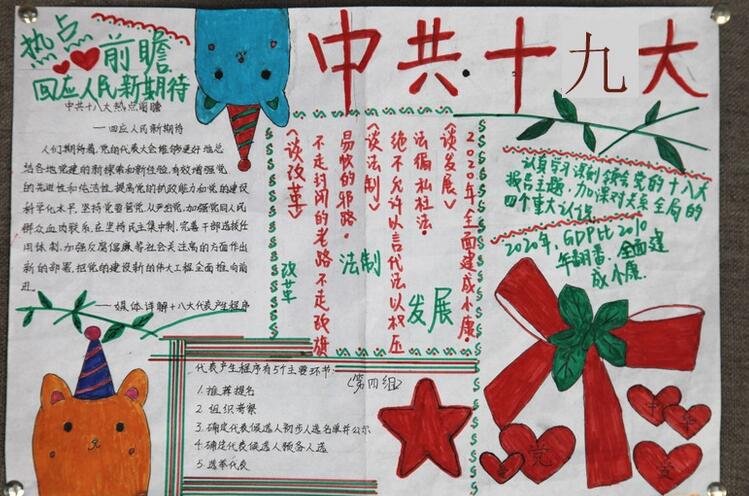 中共十九大
热点
前瞻
回应人民新期待
中共十八大热点前瞻
——回应人民新期待
人们期待着,党的代表大会能够更好地总
结各地党建的新探索和新经验,有效增强党
的先进性和纯洁性,提高党的执政能力和党的建设
科学化水平,坚持党要管党,从严治党,加强党同人民
群众血肉联系,在坚持民主集中制,完善干部选拔任
用体制,加强反腐倡廉等社会关注高的方面作出
新的部署,把党的建设新的伟大工程全面推向前
进。
——媒体详解十八大代表产生程序
2020年全面建成小康。
《谈发展》
法徇私枉法。
绝不允许以言代法以权压
《谈法制》
易帜的邪路。
不走封闭的老路不走改旗
《谈改革》
改革
法制
发展
认真学习深刻领会党的十八大
报告主题,加深对关系全局的
四个重大认识
2020年,GDP比2010
年翻番,全面建
成小康.
代表产生程序有5个主要环节:
1.推荐提名
2.组织考察
3.确定代表候选人初步人选名单并公示
4.确定代表候选人预备人选
5.选举代表
(第四组)
党